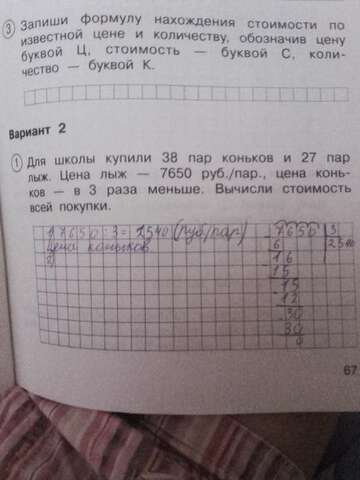 3 Запиши формулу нахождения стоимости по
известной цене и количеству, обозначив цену
буквой Ц, стоимость — буквой С, коли-
чество — буквой К.
Вариант 2
1 Для школы купили 38 пар коньков и 27 пар
лыж. Цена лыж — 7650 руб./пар., цена конь-
ков — в 3 раза меньше. Вычисли стоимость
всей покупки.
1) 7650 : 3 = 2540 (руб/пар)
Цена коньков
2)
7650 3
6 2540
16
15
15
12
30
30
0
67